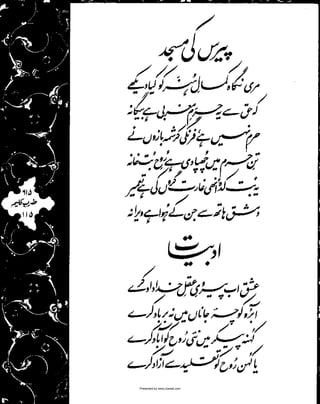 پیرس کی مسجد
مری نگاہ کمالِ ہنر کو کیا دیکھے
کہ حق سے یہ حرمِ مغربی ہے بیگانہ
حرم نہیں ہے، فرنگی کرشمہ بازوں نے
تنِ حرم میں چھپا دی ہے روحِ بت خانہ
یہ بت کدہ انھی غارت گروں کی ہے تعمیر
دمشق ہاتھ سے جن کے ہوا ہے ویرانہ
ادبیات
عشق اب پیرویِ عقلِ خدا داد کرے
آبرو کوچۂ جاناں میں نہ برباد کرے
کہنہ پیکر میں نئی روح کو آباد کرے
یا کہن روح کو تقلید سے آزاد کرے
۶۱۵
ضربِ کلیم
۱۱۵
Presented by www.ziaraat.com